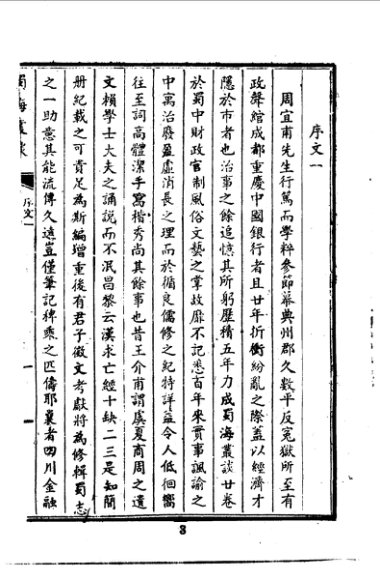 序文一
周宜甫先生行篤而學粹參節幕典州郡久數平反冤獄所至有
政聲綰成都重慶中國銀行者且廿年折衝紛亂之際蓋以經濟才
隱於市者也治事之餘追憶其所躬歷積五年力成蜀海叢談廿卷
於蜀中財政官制風俗文藝之掌故靡不記悉百年來實事諷諭之
中寓治廢盈虛消長之理而於循良儒修之紀特詳益令人低徊嚮
往至詞高體潔手寫楷秀尚其餘事也昔王介甫謂虞夏商周之遺
文賴學士大夫之誦說而不泯昌黎云漢求亡經十缺二三是知簡
册紀載之可貴足為斯編增重後有君子徵文考獻將為修輯蜀志
之一助意其能流傳久遠豈僅筆記稗乘之匹儔耶曩者四川金融
蜀海叢談
序文一
一
3